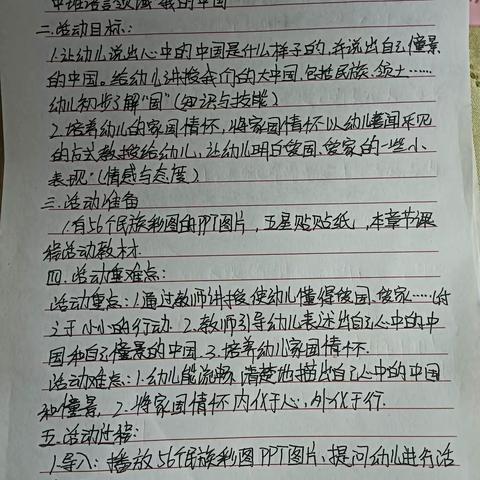 中班语言领域 我的中国
二.活动目标:
1.让幼儿说出心中的中国是什么样子的,并说出自己憧景
的中国。给幼儿讲授我们的大中国,包括民族、领土……
幼儿初步了解“国”(知识与技能)
2.培养幼儿的家国情怀,将家国情怀以幼儿喜闻乐见
的方式教授给幼儿,让幼儿明白爱国、爱家的一些小
表现。(情感与态度)
三.活动准备
1.有56个民族彩图的PPT图片,五星贴贴纸,本章节课
程活动教材.
四.活动重难点:
活动重点:1.通过教师讲授使幼儿懂得爱国、爱家……付
之于小小的行动 2.教师引导幼儿表述出自己心中的中
国和自己憧景的中国.3.培养幼儿家国情怀.
活动难点:1.幼儿能流畅、清楚地描出自己心中的中国
和憧景.2.将家国情怀内化于心,外化于行.
五.活动过程:
1.导入:播放56个民族彩图PPT图片、提问幼儿进行活